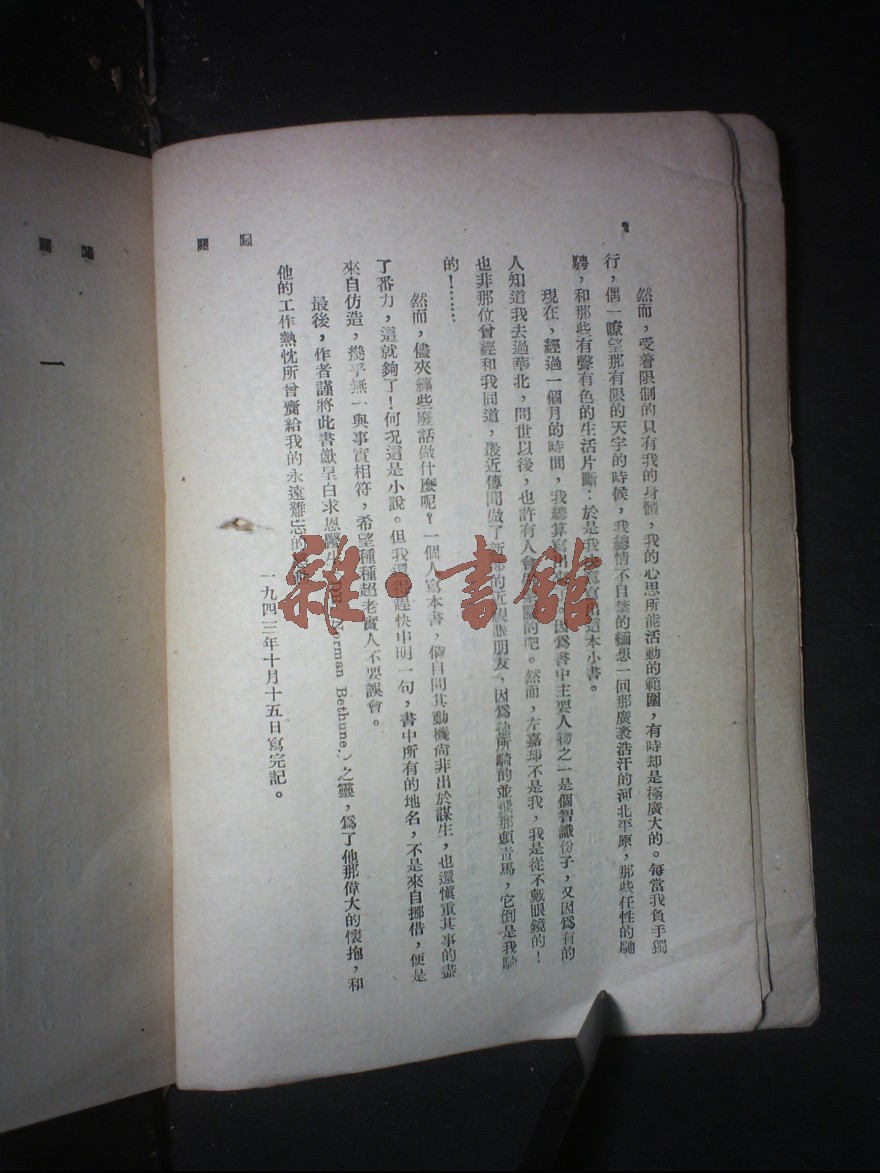 2
然而，受着限制的只有我的身體，我的心思所能活動的範圍，有時却是極廣大的。每當我負手獨
行，偶一瞭望那有限的天宇的時候，我總情不自禁的緬想一回那廣袤浩汗的河北平原，那些任性的馳
騁，和那些有聲有色的生活片斷；於是我 這本小書。
現在，經過一個月的時間，我總算寫出 因爲書中主要人物之一是個智識份子，又因爲有的
人知道我去過華北，問世以後，也許有人會 的吧。然而，左嘉却不是我，我是從不戴眼鏡的！
也非那位曾經和我同道，最近傳聞做了新郎的近視眼朋友，因爲他所騎的並非那頭青馬，它倒是我騎
的！……
然而，儘夾纏些廢話做什麼呢？一個人寫本書，倘自問其動機尚非出於謀生，也還愼重其事的盡
了番力，這就夠了！何況這是小說。但我還得趕快申明一句，書中所有的地名，不是來自挪借，便是
來自仿造，幾乎無一與事實相符，希望種種超老實人不要誤會。
最後，作者謹將此書獻呈白求恩醫生 Norman Bethune.）之靈，爲了他那偉大的懷抱，和
他的工作熱忱所曾賚給我的永遠難忘的
一九四三年十月十五日寫完記。
一
雜·書館